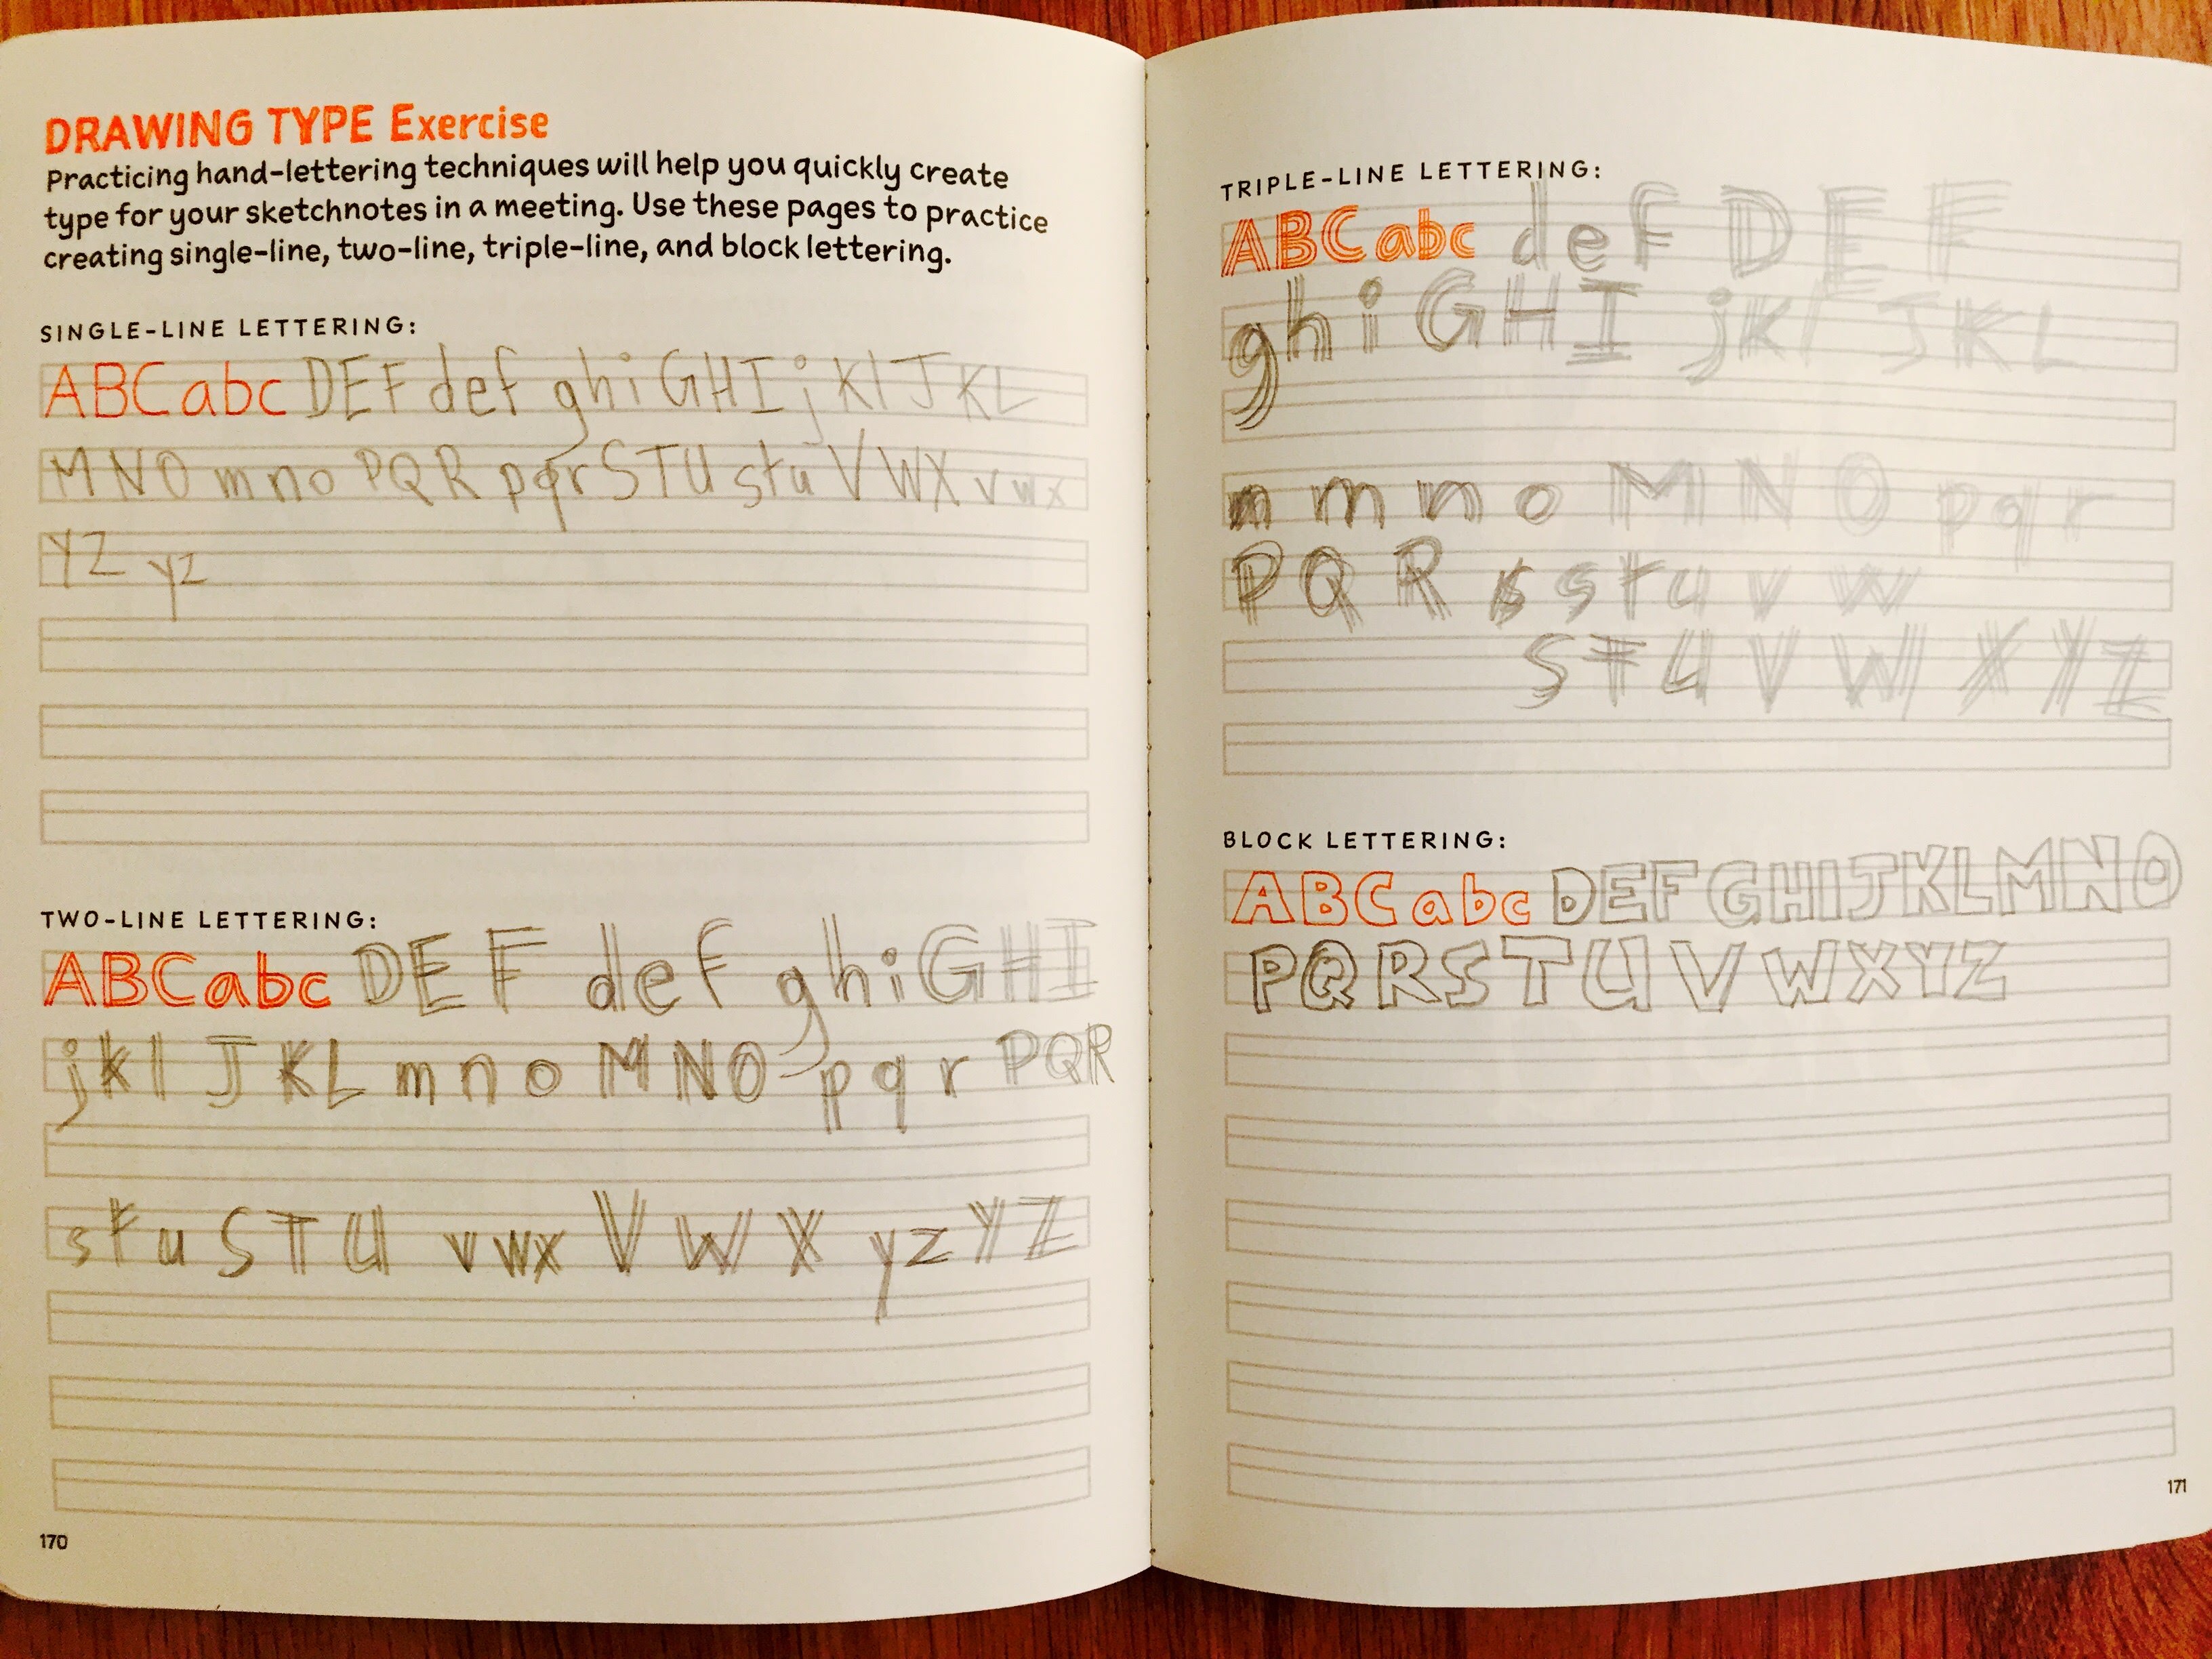 DRAWING TYPE Exercise
Practicing hand-lettering techniques will help you quickly create
type for your sketchnotes in a meeting. Use these pages to practice
creating single-line, two-line, triple-line, and block lettering.
SINGLE-LINE LETTERING:
ABC abc DEF def ghi GHI jkl JKL
MNO mno PQR pqr STU stu VWX vwx
YZ yz
TWO-LINE LETTERING:
ABC abc DEF def ghi GHI
jkl JKL mno MNO pqr PQR
stu STU vwx VWX yz YZ
170
TRIPLE-LINE LETTERING:
ABC abc def DEF
ghi GHI jkl JKL
m m n o MNO pqr
PQR s s t u v w
S T U V W X Y Z
BLOCK LETTERING:
ABC abc DEFGHIJKLMNO
PQRSTUVWXYZ
171